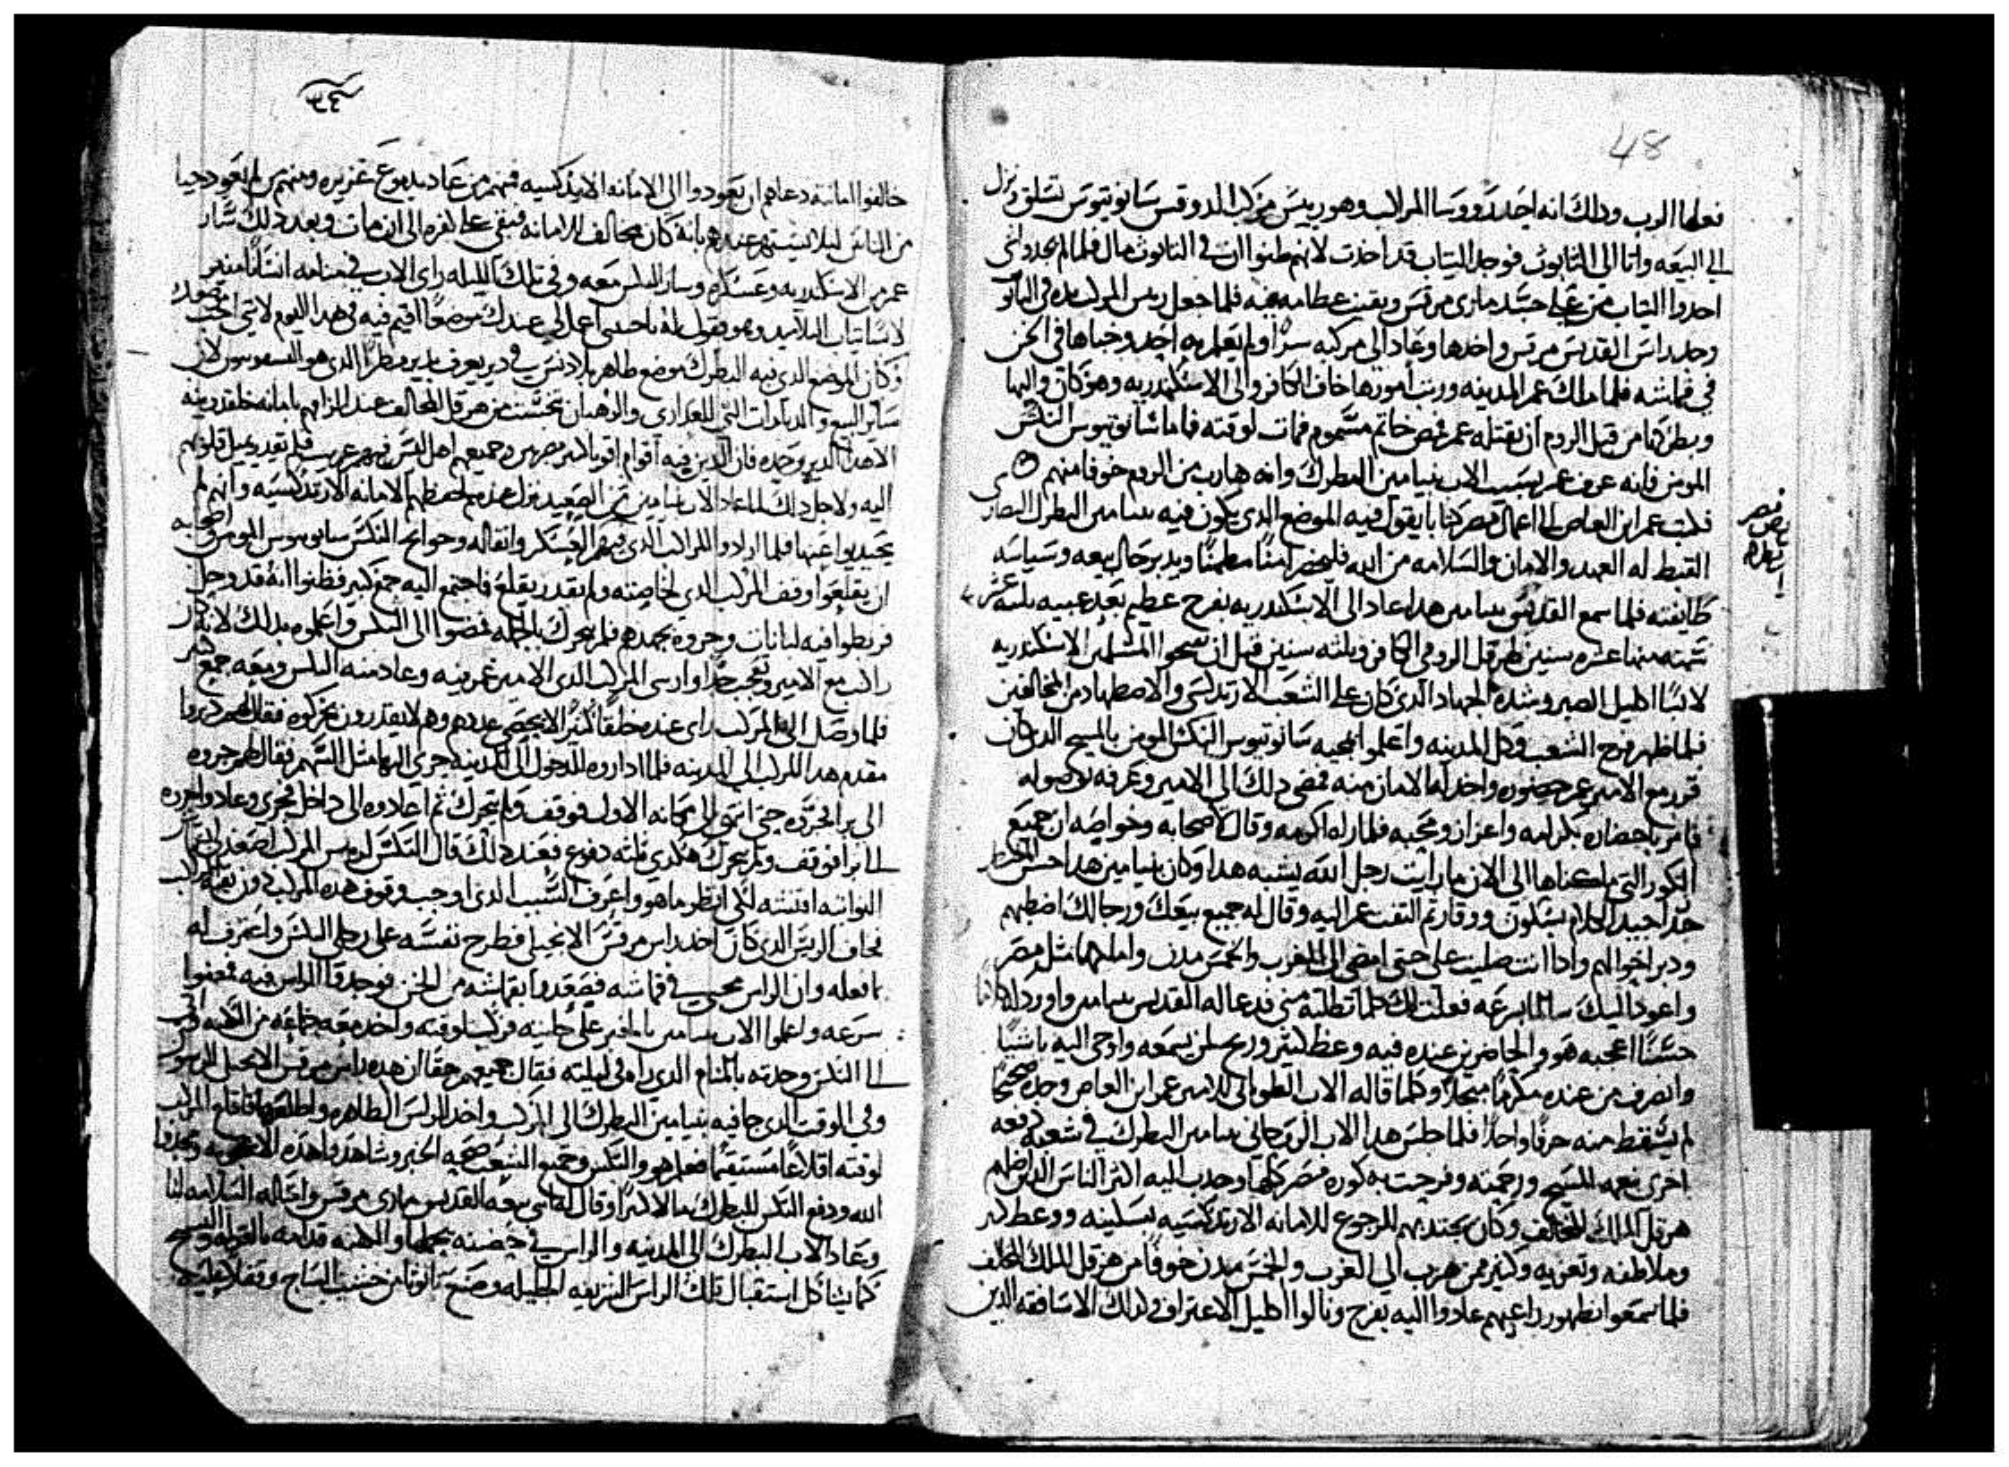 48
فعلها الرب وذلك انه احد روسا المراكب وهو رييس مركب الدوقس سانوتيوس تسلق ونزل
الي البيعه واتا الي التابوت فوجد التياب قد اخدت لانهم ظنوا ان في التابوت مال فلما لم يجدوا شي
اخدوا التياب من علي جسد ماري مرقس وبقيت عظامه فيه فلما جعل ريس المركب يده في التابوت
وجد راس القديس مرقس واخدها وعاد الى مركبه سرًا ولم يعلم به احد وخباها في الخن
في قماشه فلما ملك عمر المدينه ورتب امورها خاف الكافر والى الاسكندريه وهو كان واليها
وبطركها من قبل الروم ان يقتله عمر فمص خاتم مسموم فمات لوقته فاما سانوتيوس التكس
المومن فانه عرف عمر بسبب الاب بنيامين البطرك وانه هارب من الروم خوفا منهم
فكتب عمر ابن العاص الى اعمال مصر كتابا يقول فيه الموضع الدي يكون فيه بنيامين البطرك النصارى
القبط له العهد والامان والسلامه من الله فليحضر امنًا مطمنًا ويدبر حال بيعه وسياسه
طايفته فلما سمع القديس بنيامين هدا عاد الى الاسكندريه بفرح عظيم بعد غيبه تلته عشر
منها عشره سنين لهرقل الرومي الكافر وتلته سنين قبل ان يفتحوا المسلمين الاسكندريه
لابسًا اكليل الصبر وشده الجهاد الدي كان على الشعب الارتدكسي والاضطهاد من المخالفين
فلما ظهر فرح الشعب وكل المدينه واعلموا بمجيه سانوتيوس التكس المومن بالمسيح الدي كان
قرر مع الامير عمر حضوره واخد له الامان منه فمضى دلك الى الامير وعرفه بوصوله
فامر باحضاره بكرامه واعزاز ومحبه فلما راه اكرمه وقال لاصحابه وخواصه ان جميع
الكور التي ملكناها الي الان ما رايت رجل الله يشبه هدا وكان بنيامين هدا حسن المنظر
جدا جيد الكلام بسكون ووقار تم التفت عمر اليه وقال له جميع بيعك ورجالك اضبطهم
ودبر احوالهم وادا انت صليت على حتى امضى الى المغرب والخمس مدن واملكهما مثل مصر
واعود اليك سالما بسرعه فعلت لك كلما تطلبه مني فدعا له القديس بنيامين واورد له كلاما
حسنًا اعجبه هو والحاضرين عنده فيه وعظ وربح كتير لمن يسمعه واوحى اليه باشيا
وانصرف من عنده مكرمًا مبجلًا وكلما قاله الاب الطوباني للامير عمر ابن العاص وجده صحيحًا
لم يسقط منه حرفًا واحدًا فلما جلس هدا الاب الروحاني بنيامين البطرك في شعبه دفعه
اخرى بنعمه المسيح ورحمته وفرحت به كوره مصر كلها وجدب اليه اكتر الناس الدي اضلهم
هرقل الملك المخالف وكان يجتدبهم للرجوع للامانه الارتدكسيه بسكينه ووعظ لهم
وملاطفه وتعزيه وكتير ممن هرب الى الغرب والخمس مدن خوفًا من هرقل الملك المخالف
فلما سمعوا بظهور راعيهم عادوا اليه بفرح ونالوا اكليل الاعتراف وكدلك الاساقفه الدين
خالفوا امانته دعاهم ان يعودوا الى الامانه الارتدكسيه فمنهم من عاد بدموع غزيره ومنهم من لم يعود حيا
من الناس ليلا يشتهر عندهم بانه كان مخالف للامانه فبقى على كفره الى ان مات وبعد دلك سار
عمر من الاسكندريه وعسكره وسار التكس معه وفي تلك الليله راى الاب في منامه انسانًا منير
لابسًا تياب التلاميد وهو يقول له يا حبيبي اعمل لي عندك موضعًا اقيم فيه في هدا اليوم لانني احب موضعك
وكان الموضع الدي فيه البطرك موضع طاهر بلا دنس في دير يعرف بدير مطرا الدي هو السقوسون لان
ساير البيع والديارات التي للعداري والرهبان تنجست من هرقل المخالف عند الزامهم بامانه خلقدونيه
الا هدا الدير وحده فان الدين فيه اقوام اقويا كتير مصريين وجميعهم اهل ليس فيهم غريب فلم يقدر يميل قلوبهم
اليه ولاجل دلك لما عاد الاب بنيامين من الصعيد نزل عندهم لحفظهم الامانه الارتدكسيه وانهم لم
يحيدوا عنها فلما ارادوا المراكب الدي فيهم العسكر واتقاله وحوايج التكس سانوتيوس المومن واصحابه
ان يقلعوا وقف المركب الدي لخاصته ولم يقدر يقلع فاجتمع اليه جمع كبير فظنوا انه قد وحل
فربطوا فيه لبانات وجروه بجهدهم فلم يتحرك بالجمله فمضوا الى التكس واعلموه بدلك لانه كان
راكب مع الامير وتعجب جدًا وارسى المركب الدي الامير عمر فيه وعاد منه التكس ومعه جمع كبير
فلما وصل الى المركب راى عنده خلقًا كتيرًا لا يحصى عددهم وهم لا يقدرون يحركوه فقال لهم ديروا
مقدم هدا المركب الى المدينه فلما اداروه للدخول الى المدينه جرى اليها مثل السهم فقال لهم جروه
الى برا فجروه حتى اتى الى مكانه الاول فوقف ولم يتحرك تم اعادوه الى داخل فجرى وعادوا جروه
الى برا فوقف ولم يتحرك هكدي تلته دفوع فعند دلك قال التكس لريس المركب اصعد لي قماش
النواتيه افتشه لكي انظر ما هو واعرف السبب الدي اوجب وقوف هده المركب دون بقيه المراكب
فخاف الريس الدي كان اخد راس مرقس الانجيلي فطرح نفسه على رجلي التكس واعترف له
بما فعله وان الراس مخبي في قماشه فصعدوا بقماشه من الخن فوجدوا الراس فيه فمضوا
بسرعه واعلموا الاب بنيامين بالخبر على جليته فركب لوقته واخد معه جماعه من الكهنه واتى
الى التكس وحدته بالمنام الدي راه في ليلته فقال جميعهم حقًا ان هده راس مرقس الانجيلي الرسول
وفي الوقت الدي جا فيه بنيامين البطرك الى المركب واخد الراس الطاهره واطلعها فاقلع المركب
لوقته اقلاعًا مستقيمًا فعلم هو والتكس وجميع الشعب صحه الخبر وشاهدوا هده الاعجوبه ومجدوا
الله ودفع التكس للبطرك مالا كتيرًا وقال له ابني بيعه القديس ماري مرقس واساله السلامه لنا
وعاد الاب البطرك الى المدينه والراس في حضنه يحملها والكهنه قدامه بالقراه والتسبيح
كما يشاكل استقبال تلك الراس الشريفه الجليله وصنع تابوتًا من خشب الساج وقفلا عليه